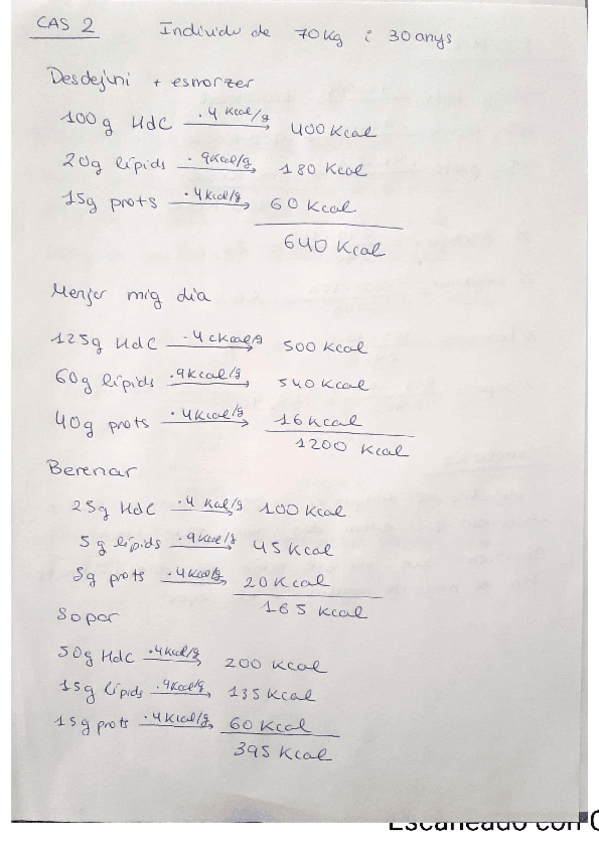 CAS 2 Individu de 70Kg i 30 anys
Desdejuni + esmorzer
100g HdC · 4 Kcal/g 400 Kcal
20g lípids · 9Kcal/g 180 Kcal
15g prots · 4Kcal/g 60 Kcal
640 Kcal
Menjar mig dia
125g HdC · 4 cKcal/g 500 Kcal
60g lípids · 9Kcal/g 540 Kcal
40g prots · 4Kcal/g 16 Kcal
1200 Kcal
Berenar
25g HdC · 4 Kcal/g 100 Kcal
5g lípids · 9Kcal/g 45 Kcal
5g prots · 4Kcal/g 20 Kcal
165 Kcal
Sopar
50g HdC · 4Kcal/g 200 Kcal
15g lípids · 9Kcal/g 135 Kcal
15g prots · 4Kcal/g 60 Kcal
395 Kcal
Escaneado con C